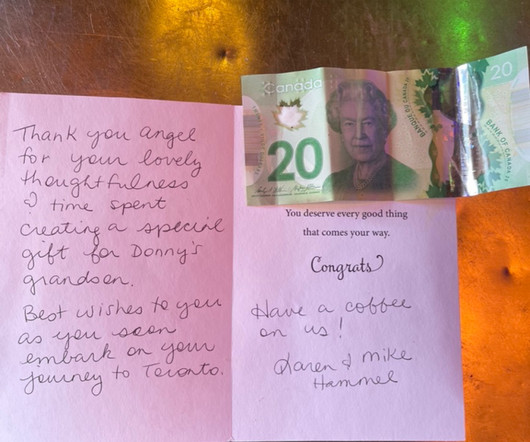 Thank you angel
for your lovely
thoughtfulness
& time spent
creating a special
gift for Donny's
grandson.
Best wishes to you
as you soon
embark on your
journey to Toronto.
Canada
20
20
BANQUE DU CANADA
BANK OF CANADA
You deserve every good thing
that comes your way.
Congrats
Have a coffee
on us!
Karen & Mike
Hammel